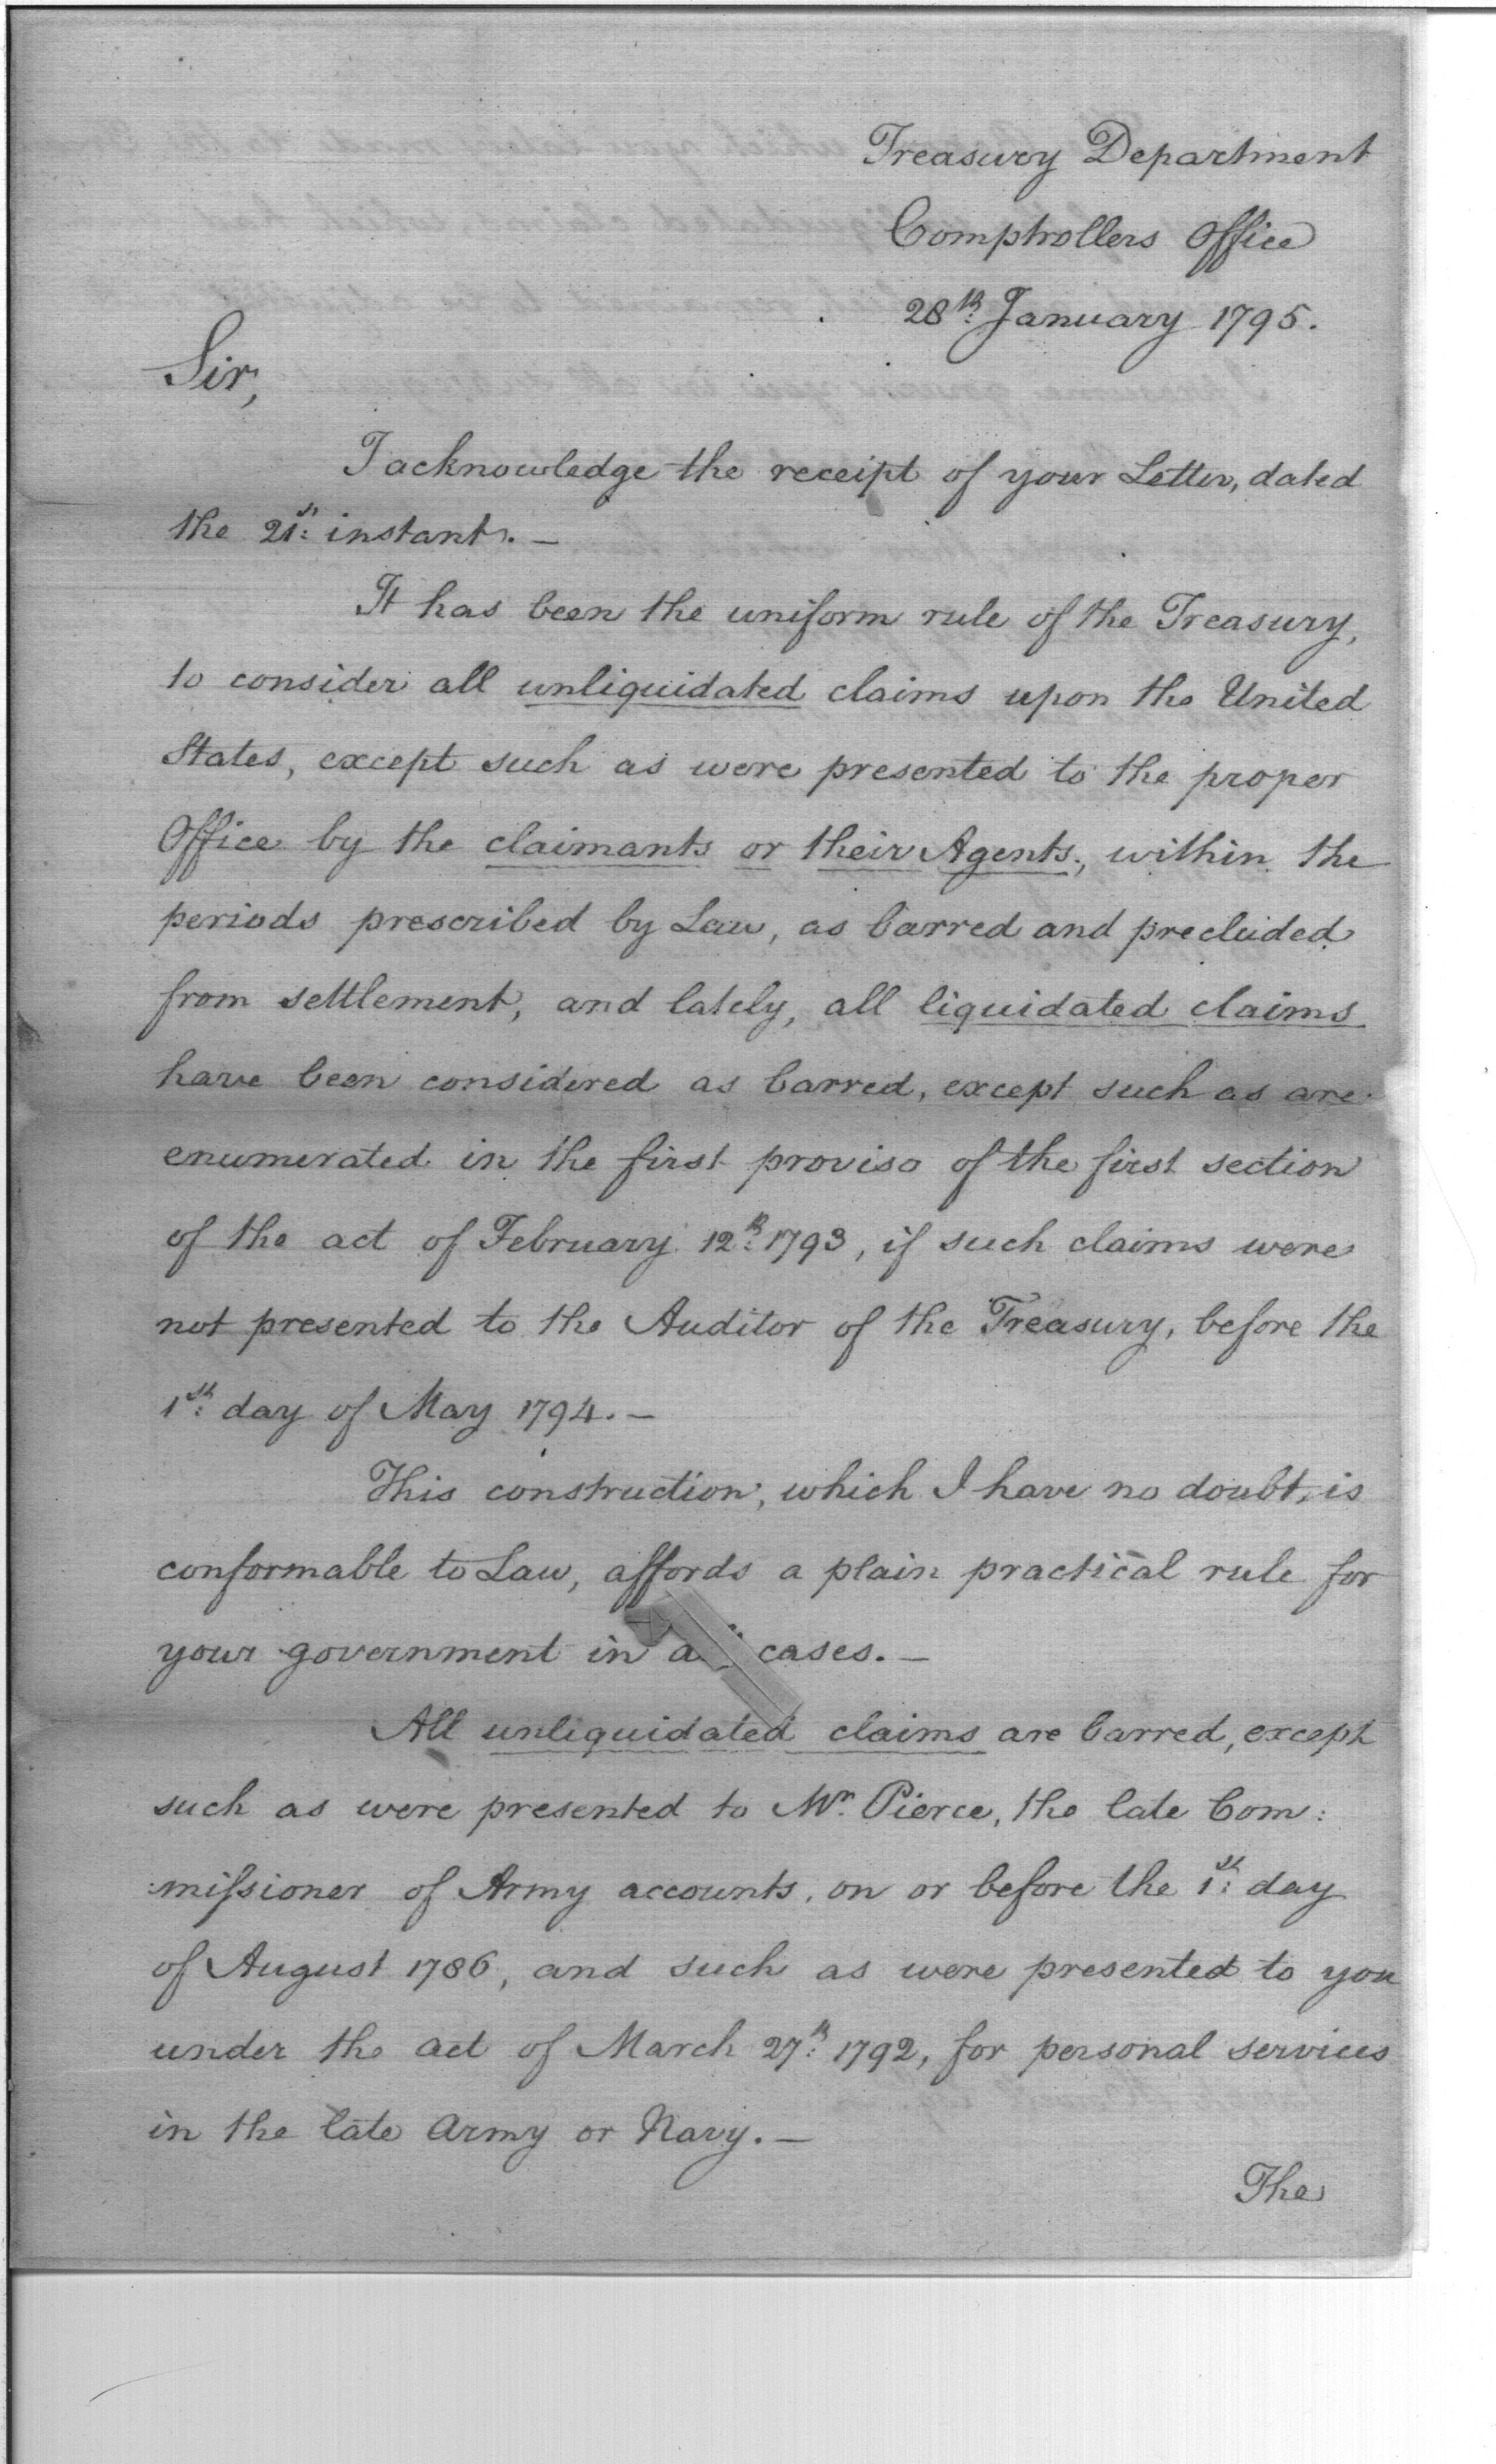 Treasury Department
Comptrollers Office
28th January 1795.
Sir,
I acknowledge the receipt of your Letter, dated
the 21st instant. —
It has been the uniform rule of the Treasury,
to consider all unliquidated claims upon the United
States, except such as were presented to the proper
Office by the claimants or their Agents, within the
periods prescribed by Law, as barred and precluded
from settlement, and lately, all liquidated claims
have been considered as barred, except such as are
enumerated in the first proviso of the first section
of the act of February 12th 1793, if such claims were
not presented to the Auditor of the Treasury, before the
1st day of May 1794. —
This construction, which I have no doubt, is
conformable to Law, affords a plain practical rule for
your government in cases. —
All unliquidated claims are barred, except
such as were presented to Mr. Pierce, the late Com:
:missioner of Army accounts, on or before the 1st day
of August 1786, and such as were presented to you
under the act of March 27th 1792, for personal services
in the late Army or Navy. —
The